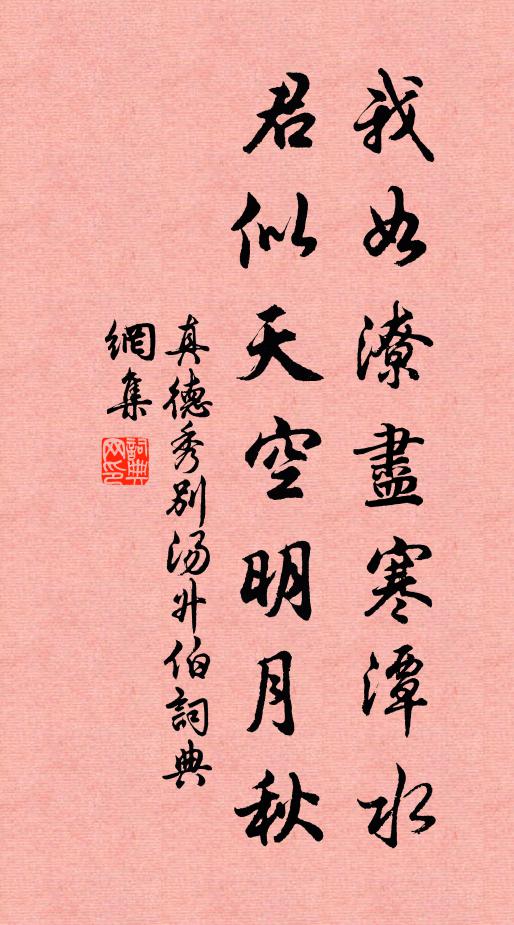 我如潦盡寒潭水
君似天空明月秋
真德秀別湯升伯詞典
網集
詞典
网印